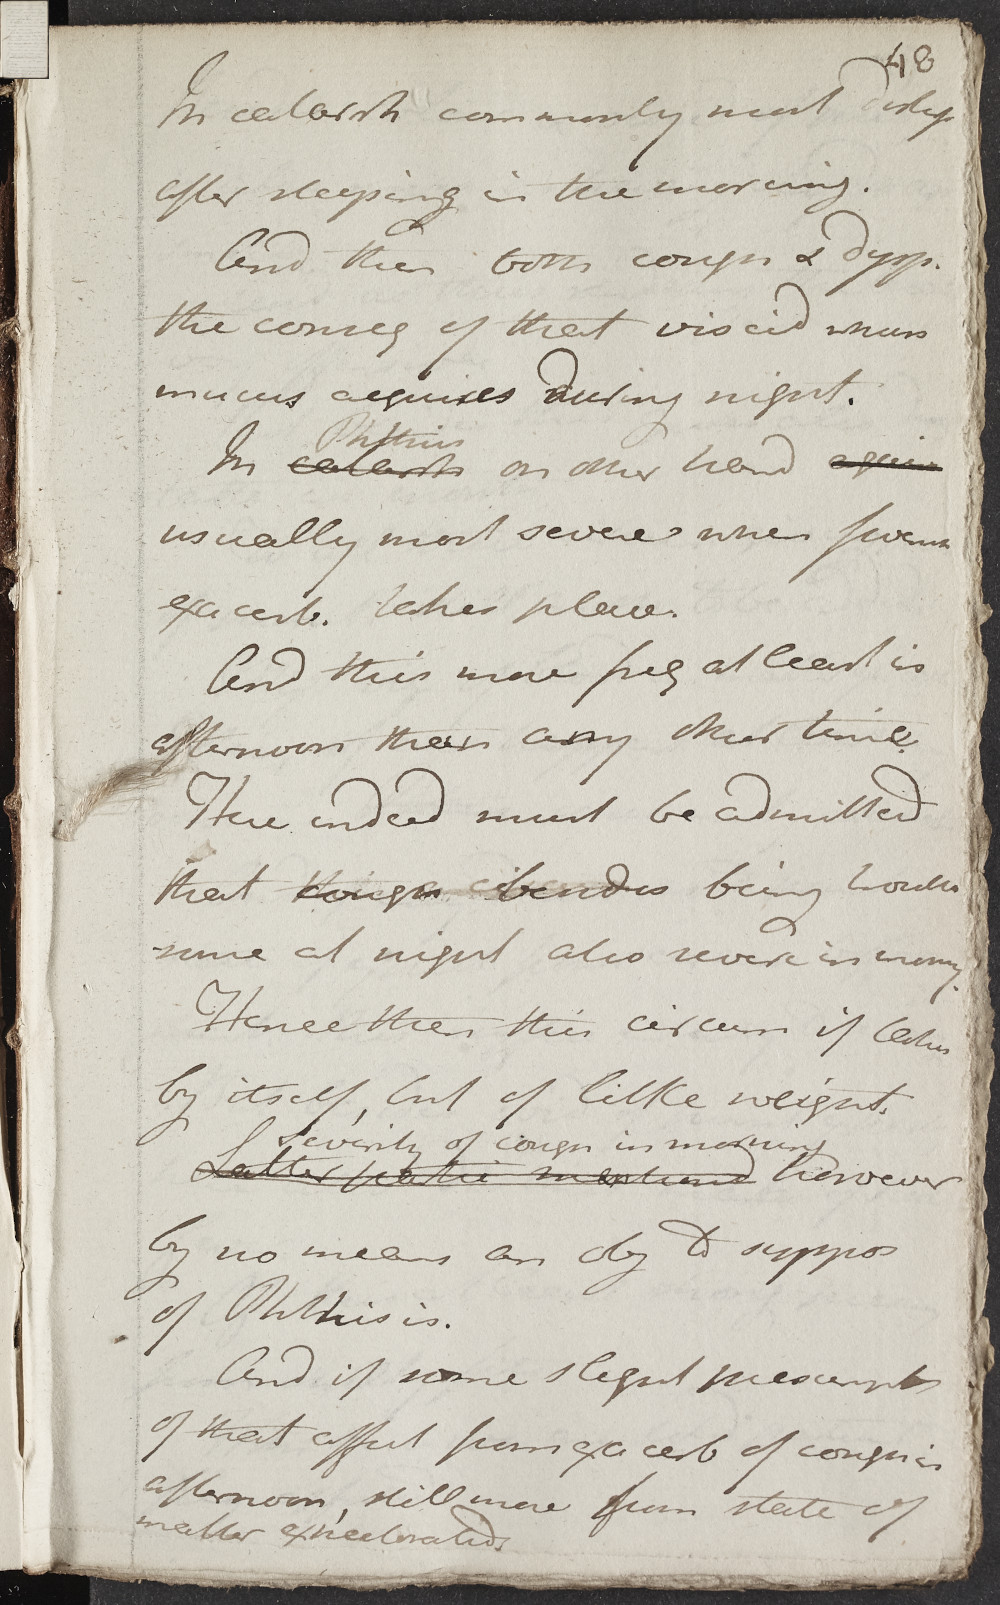 48
In catarrh commonly most
after sleeping in the morning.
And then both cough & dysp.
the conseq of that viscid whch
mucus acquires during night.
Phthisis
In catarrh on other hand again
usually most severe when
exacerb. takes place.
And this more freq at least in
afternoon than any other time.
Here indeed must be admitted
that cough being
some at night also severe in morng.
Hence then this circum if taken
by itself, but of little weight.
Severity of cough in morning
Latter partic mentiond however
by no means an obj to suppos
of Phthisis.
And if some slight presumpt
of that affect from exacerb of cough in
afternoon, still more from state of
matter expectorated.